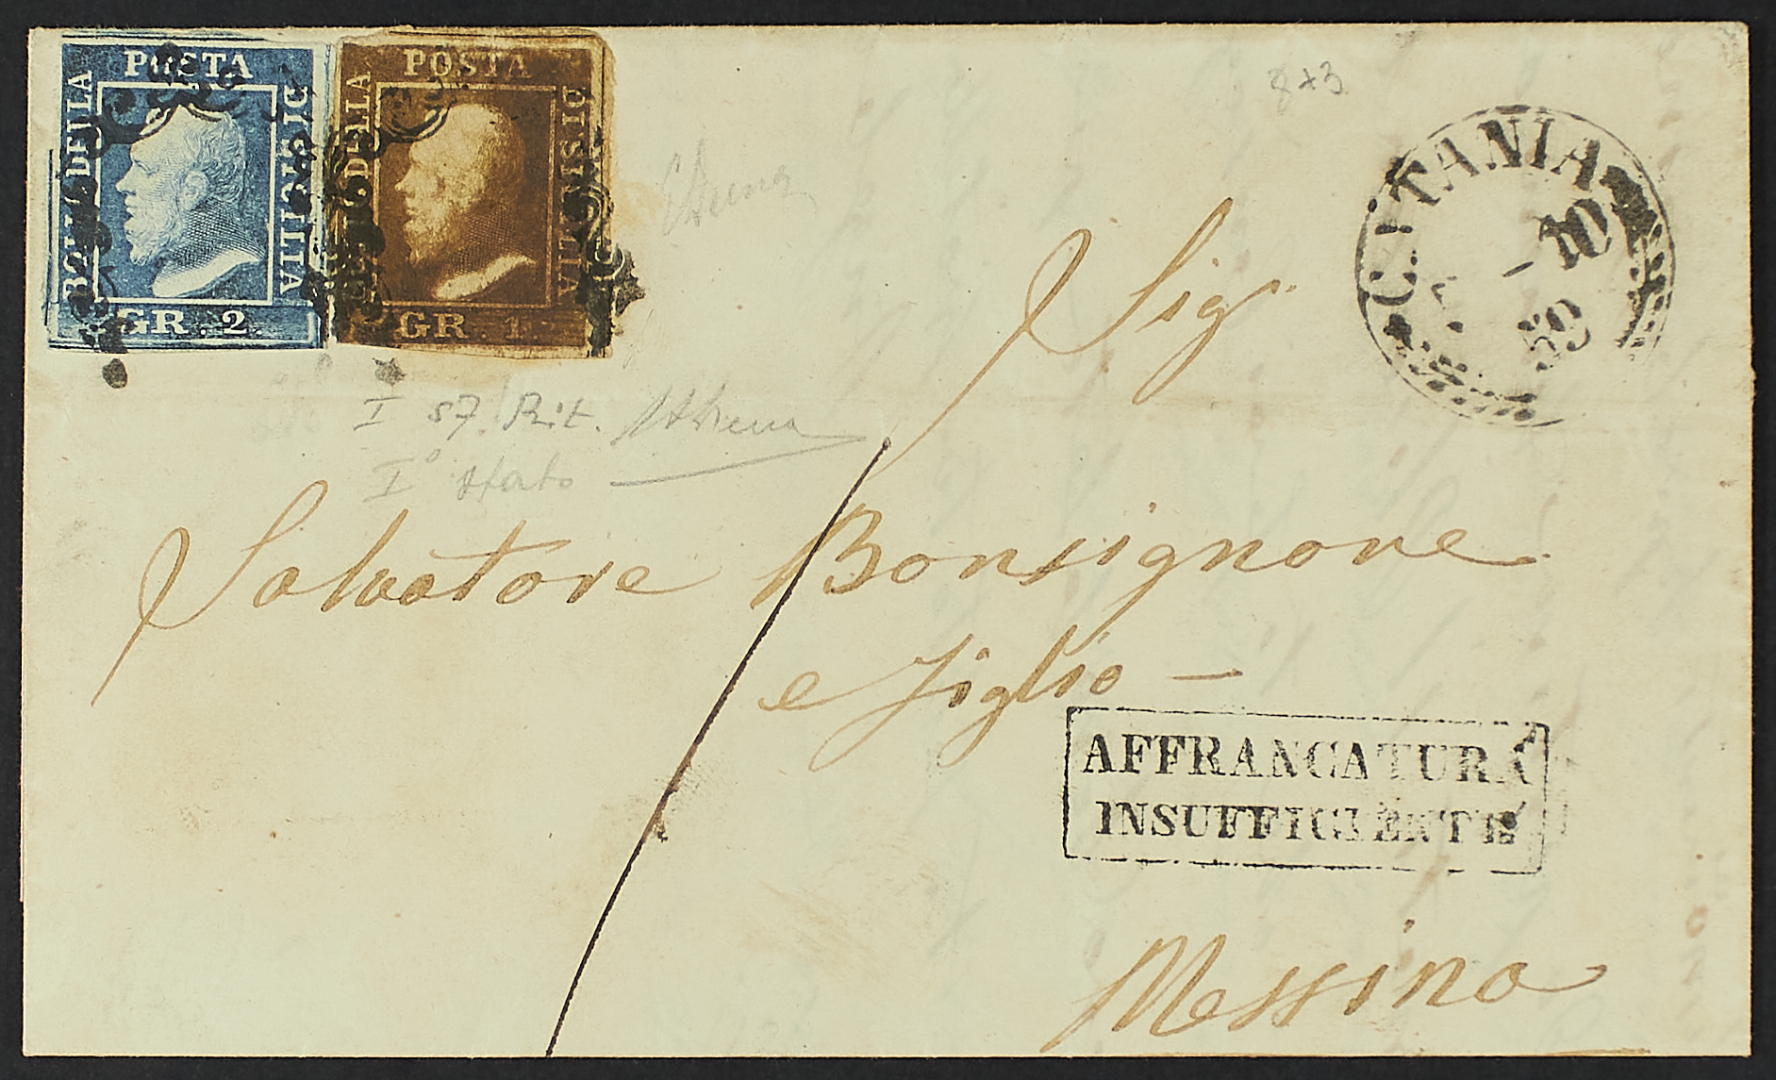 POSTA
BOLLO DELLA
DI SICILIA
GR. 2.
POSTA
DELLA
DI SICILIA
GR. 1
8+3
CATANIA
10
59
Sigr
I st. Rit.
I° stato
Salvatore Bonsignore
e figlio —
AFFRANCATURA
INSUFFICIENTE
Messina